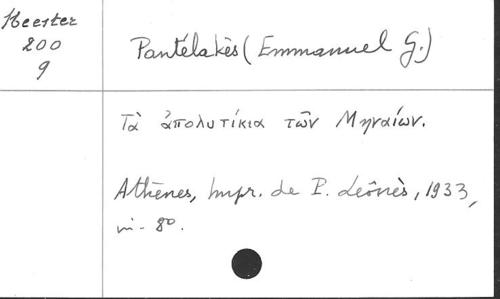 Heerter
200
9
Pantélakès (Emmanuel G.)
Τὰ ἀπολυτίκια τῶν Μηναίων.
Athènes, Impr. de P. Leônès, 1933,
in-8º.